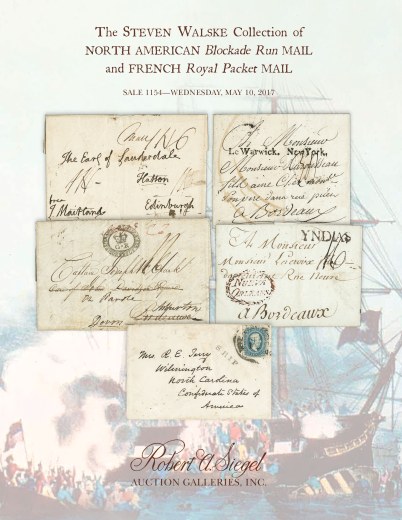 The STEVEN WALSKE Collection of
NORTH AMERICAN Blockade Run MAIL
and FRENCH Royal Packet MAIL
SALE 1154—WEDNESDAY, MAY 10, 2017
The Earl of Lauderdale
Hatton
Edinburgh
free
T Maitland
A Monsieur
Le Warwick. New York.
Monsieur
a Bordeaux
Captain Joseph
On Parole
Devon
YNDIAS
A Monsieur
Monsieur
Rue
NUEVA
ORLEANS
a Bordeaux
SHIP
Mrs R. E. Terry
Wilmington
North Carolina
Confederate States of
America
Robert A. Siegel
AUCTION GALLERIES, INC.